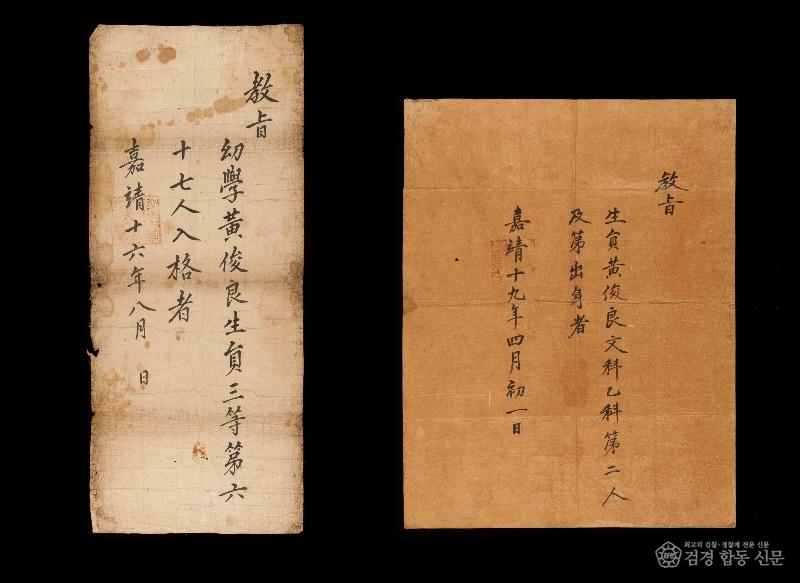 教旨
幼學黃俊良生員三等第六
十七人入格者
嘉靖十六年八月 日
教旨
生員黃俊良文科乙科第二人
及第出身者
嘉靖十九年四月初一日
최고의 검찰·경찰계 전문 신문
검경 합동 신문